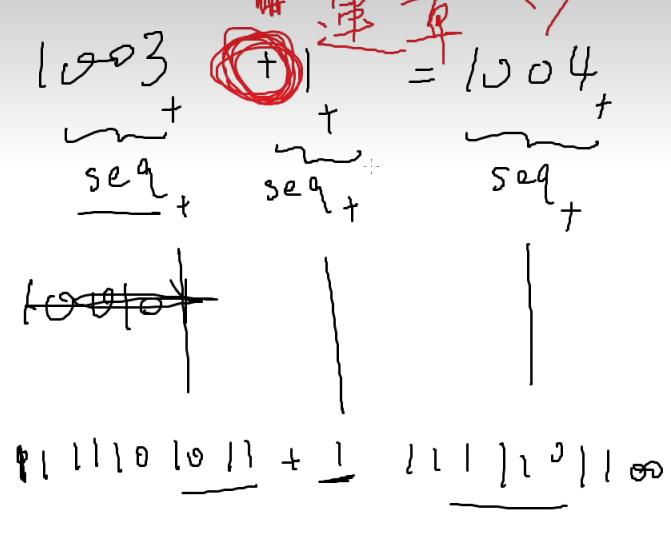 運算
1003₊ + 1₊ = 1004₊
seq₊ seq₊ seq₊
10010
1111101011 + 1 1111101100